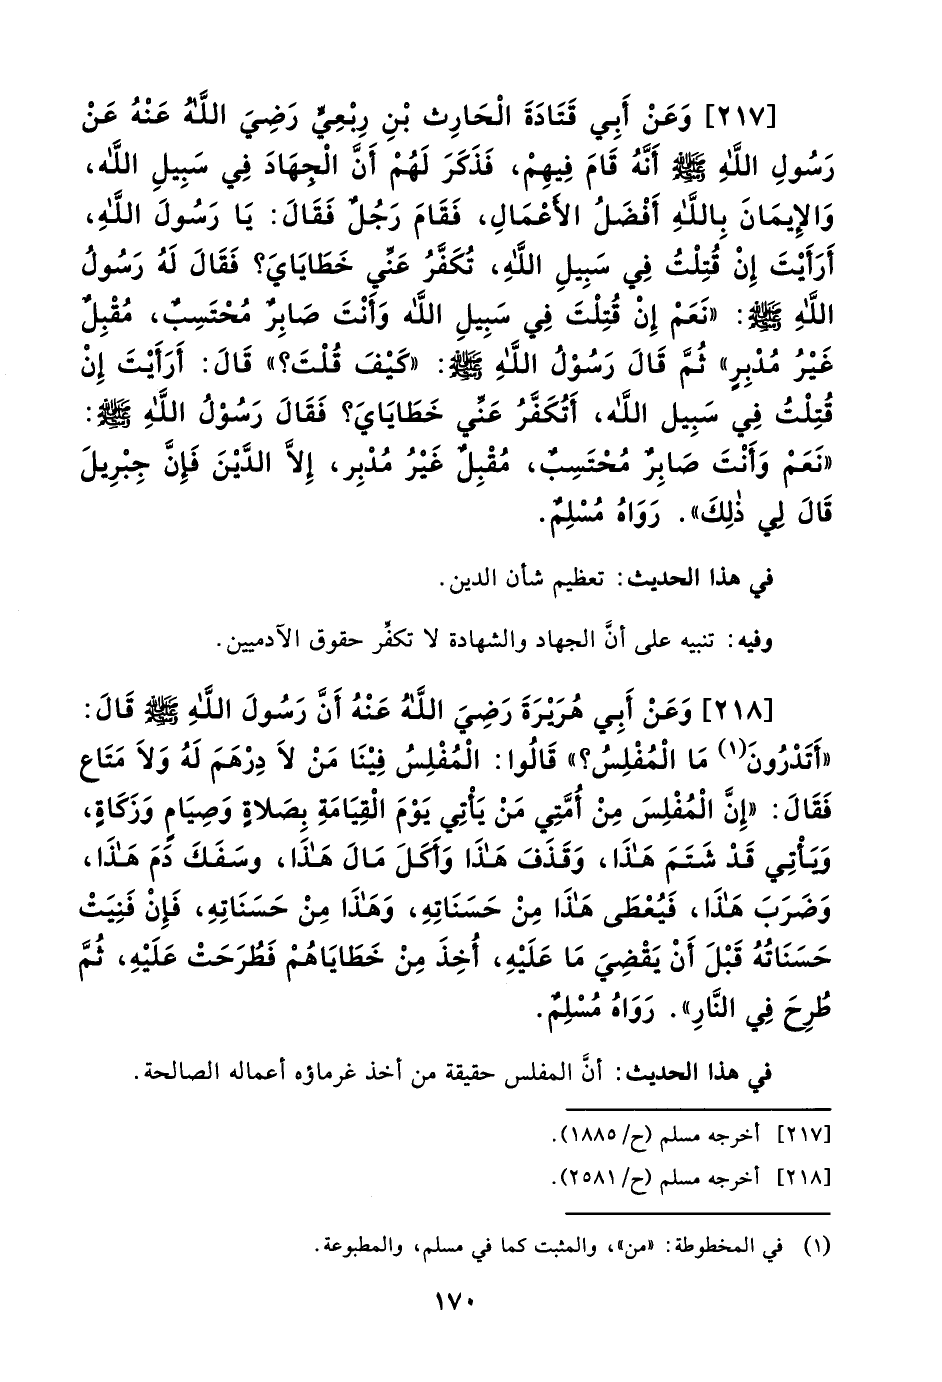 [٢١٧] وَعَنْ أَبِي قَتَادَةَ الْحَارِثِ بْنِ رِبْعِيٍّ رَضِيَ اللَّهُ عَنْهُ عَنْ
رَسُولِ اللَّهِ ﷺ أَنَّهُ قَامَ فِيهِمْ، فَذَكَرَ لَهُمْ أَنَّ الْجِهَادَ فِي سَبِيلِ اللَّه،
وَالإِيمَانَ بِاللَّهِ أَفْضَلُ الأَعْمَالِ، فَقَامَ رَجُلٌ فَقَالَ: يَا رَسُولَ اللَّهِ،
أَرَأَيْتَ إِنْ قُتِلْتُ فِي سَبِيلِ اللَّهِ، تُكَفَّرُ عَنِّي خَطَايَايَ؟ فَقَالَ لَهُ رَسُولُ
اللَّهِ ﷺ: «نَعَمْ إِنْ قُتِلْتَ فِي سَبِيلِ اللَّه وَأَنْتَ صَابِرٌ مُحْتَسِبٌ، مُقْبِلٌ
غَيْرُ مُدْبِرٍ» ثُمَّ قَالَ رَسُوْلُ اللَّهِ ﷺ: «كَيْفَ قُلْتَ؟» قَالَ: أَرَأَيْتَ إِنْ
قُتِلْتُ فِي سَبِيلِ اللَّه، أَتُكَفَّرُ عَنِّي خَطَايَايَ؟ فَقَالَ رَسُوْلُ اللَّهِ ﷺ:
«نَعَمْ وَأَنْتَ صَابِرٌ مُحْتَسِبٌ، مُقْبِلٌ غَيْرُ مُدْبِر، إِلاَّ الدَّيْنَ فَإِنَّ جِبْرِيلَ
قَالَ لِي ذٰلِكَ». رَوَاهُ مُسْلِمٌ.
في هذا الحديث: تعظيم شأن الدين.
وفيه: تنبيه على أنَّ الجهاد والشهادة لا تكفِّر حقوق الآدميين.
[٢١٨] وَعَنْ أَبِي هُرَيْرَةَ رَضِيَ اللَّهُ عَنْهُ أَنَّ رَسُولَ اللَّهِ ﷺ قَالَ:
«أَتَدْرُونَ(١) مَا الْمُفْلِسُ؟» قَالُوا: الْمُفْلِسُ فِيْنَا مَنْ لاَ دِرْهَمَ لَهُ وَلاَ مَتَاع
فَقَالَ: «إِنَّ الْمُفْلِسَ مِنْ أُمَّتِي مَنْ يَأْتِي يَوْمَ الْقِيَامَةِ بِصَلاةٍ وَصِيَامٍ وَزَكَاةٍ،
وَيَأْتِي قَدْ شَتَمَ هَـٰذَا، وَقَذَفَ هَـٰذَا وَأَكَلَ مَالَ هَـٰذَا، وسَفَكَ دَمَ هَـٰذَا،
وَضَرَبَ هَـٰذَا، فَيُعْطَى هَـٰذَا مِنْ حَسَنَاتِهِ، وَهَـٰذَا مِنْ حَسَنَاتِهِ، فَإِنْ فَنِيَتْ
حَسَنَاتُهُ قَبْلَ أَنْ يَقْضِيَ مَا عَلَيْهِ، أُخِذَ مِنْ خَطَايَاهُمْ فَطُرِحَتْ عَلَيْهِ، ثُمَّ
طُرِحَ فِي النَّارِ». رَوَاهُ مُسْلِمٌ.
في هذا الحديث: أنَّ المفلس حقيقة من أخذ غرماؤه أعماله الصالحة.
[٢١٧] أخرجه مسلم (ح/ ١٨٨٥).
[٢١٨] أخرجه مسلم (ح/ ٢٥٨١).
(١) في المخطوطة: «من»، والمثبت كما في مسلم، والمطبوعة.
١٧٠